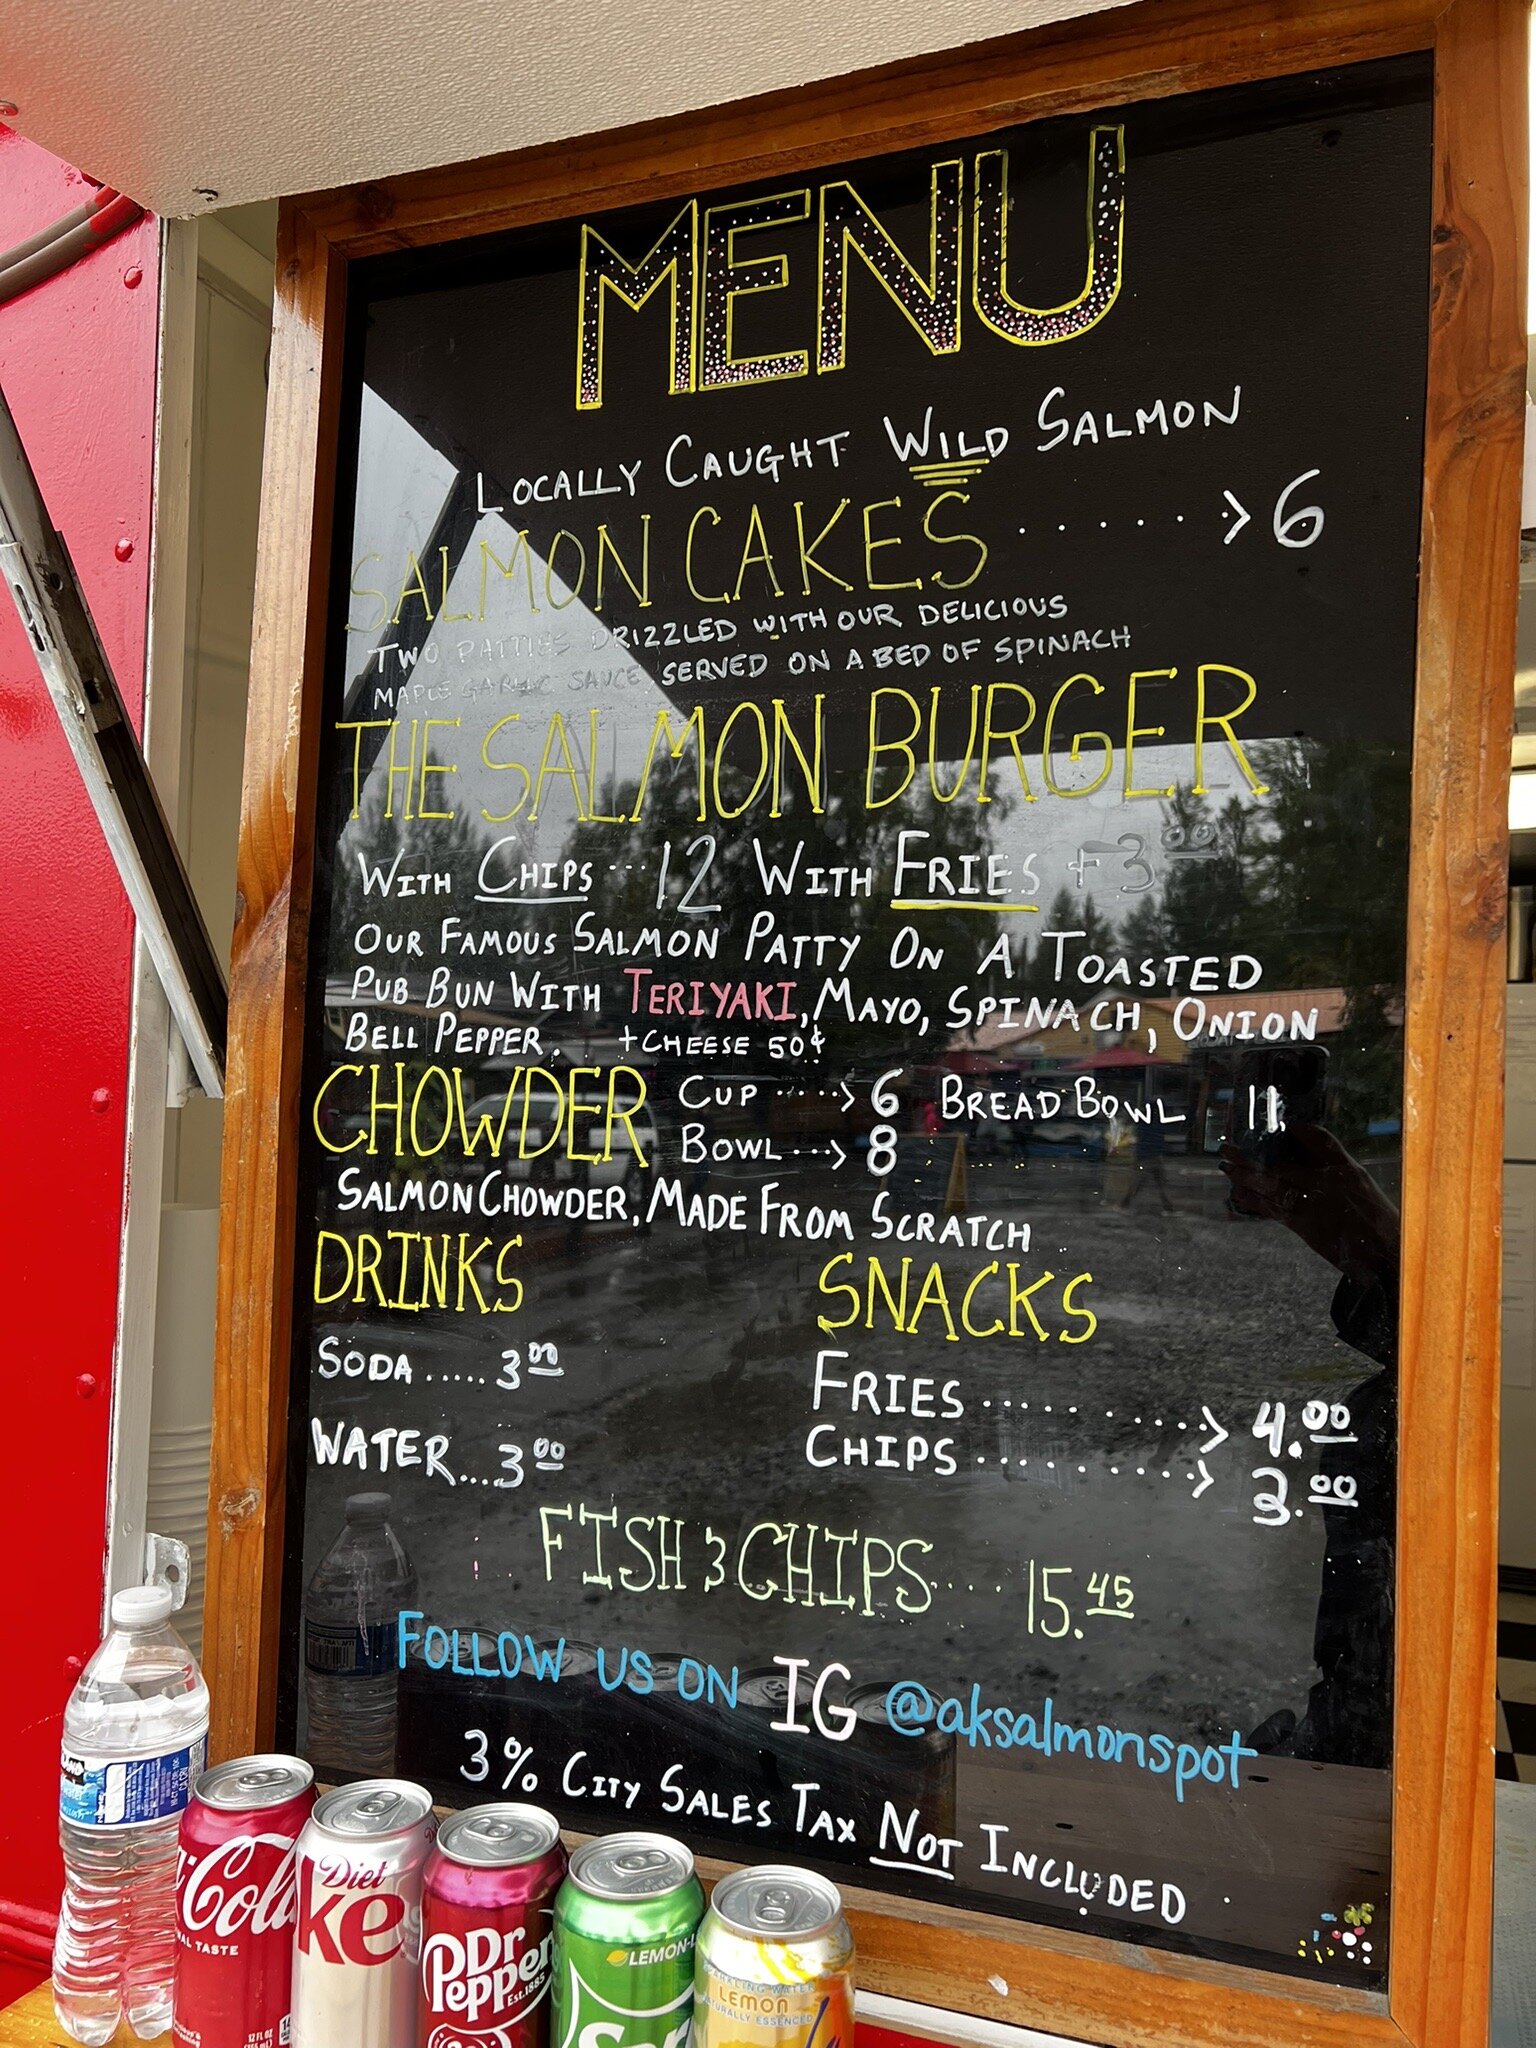 MENU
LOCALLY CAUGHT WILD SALMON
SALMON CAKES ......> 6
TWO PATTIES DRIZZLED WITH OUR DELICIOUS
MAPLE GARLIC SAUCE. SERVED ON A BED OF SPINACH
THE SALMON BURGER
WITH CHIPS ... 12 WITH FRIES +3.00
OUR FAMOUS SALMON PATTY ON A TOASTED
PUB BUN WITH TERIYAKI, MAYO, SPINACH, ONION
BELL PEPPER. +CHEESE 50¢
CHOWDER CUP .....> 6 BREAD BOWL 11.
BOWL ...> 8
SALMON CHOWDER, MADE FROM SCRATCH
DRINKS
SODA ..... 3.00
WATER ... 3.00
SNACKS
FRIES ..........> 4.00
CHIPS ..........> 3.00
FISH & CHIPS .... 15.45
FOLLOW US ON IG @aksalmonspot
3% CITY SALES TAX NOT INCLUDED
Coca-Cola
TASTE
12 FL OZ
Diet
Ke
Dr
Pepper
EST. 1885
LEMON-L
SPARKLING WATER
LEMON
NATURALLY ESSENCED